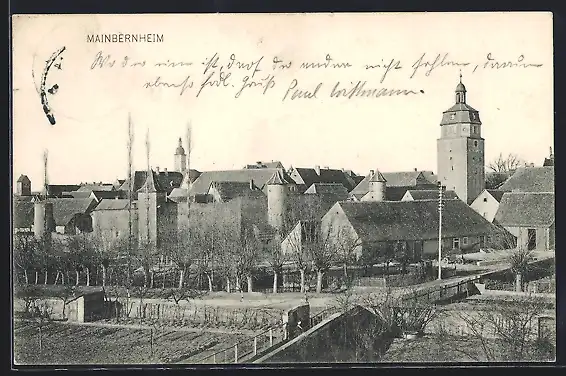 MAINBERNHEIM
Wo der eine ist, darf der andere nicht fehlen, darum
ebenso frdl. Gruß Paul Wittmann.